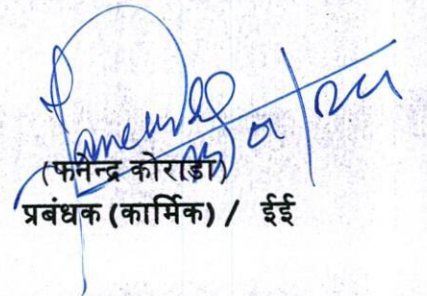 (फनेन्द्र कोराडा)
प्रबंधक (कार्मिक) / ईई